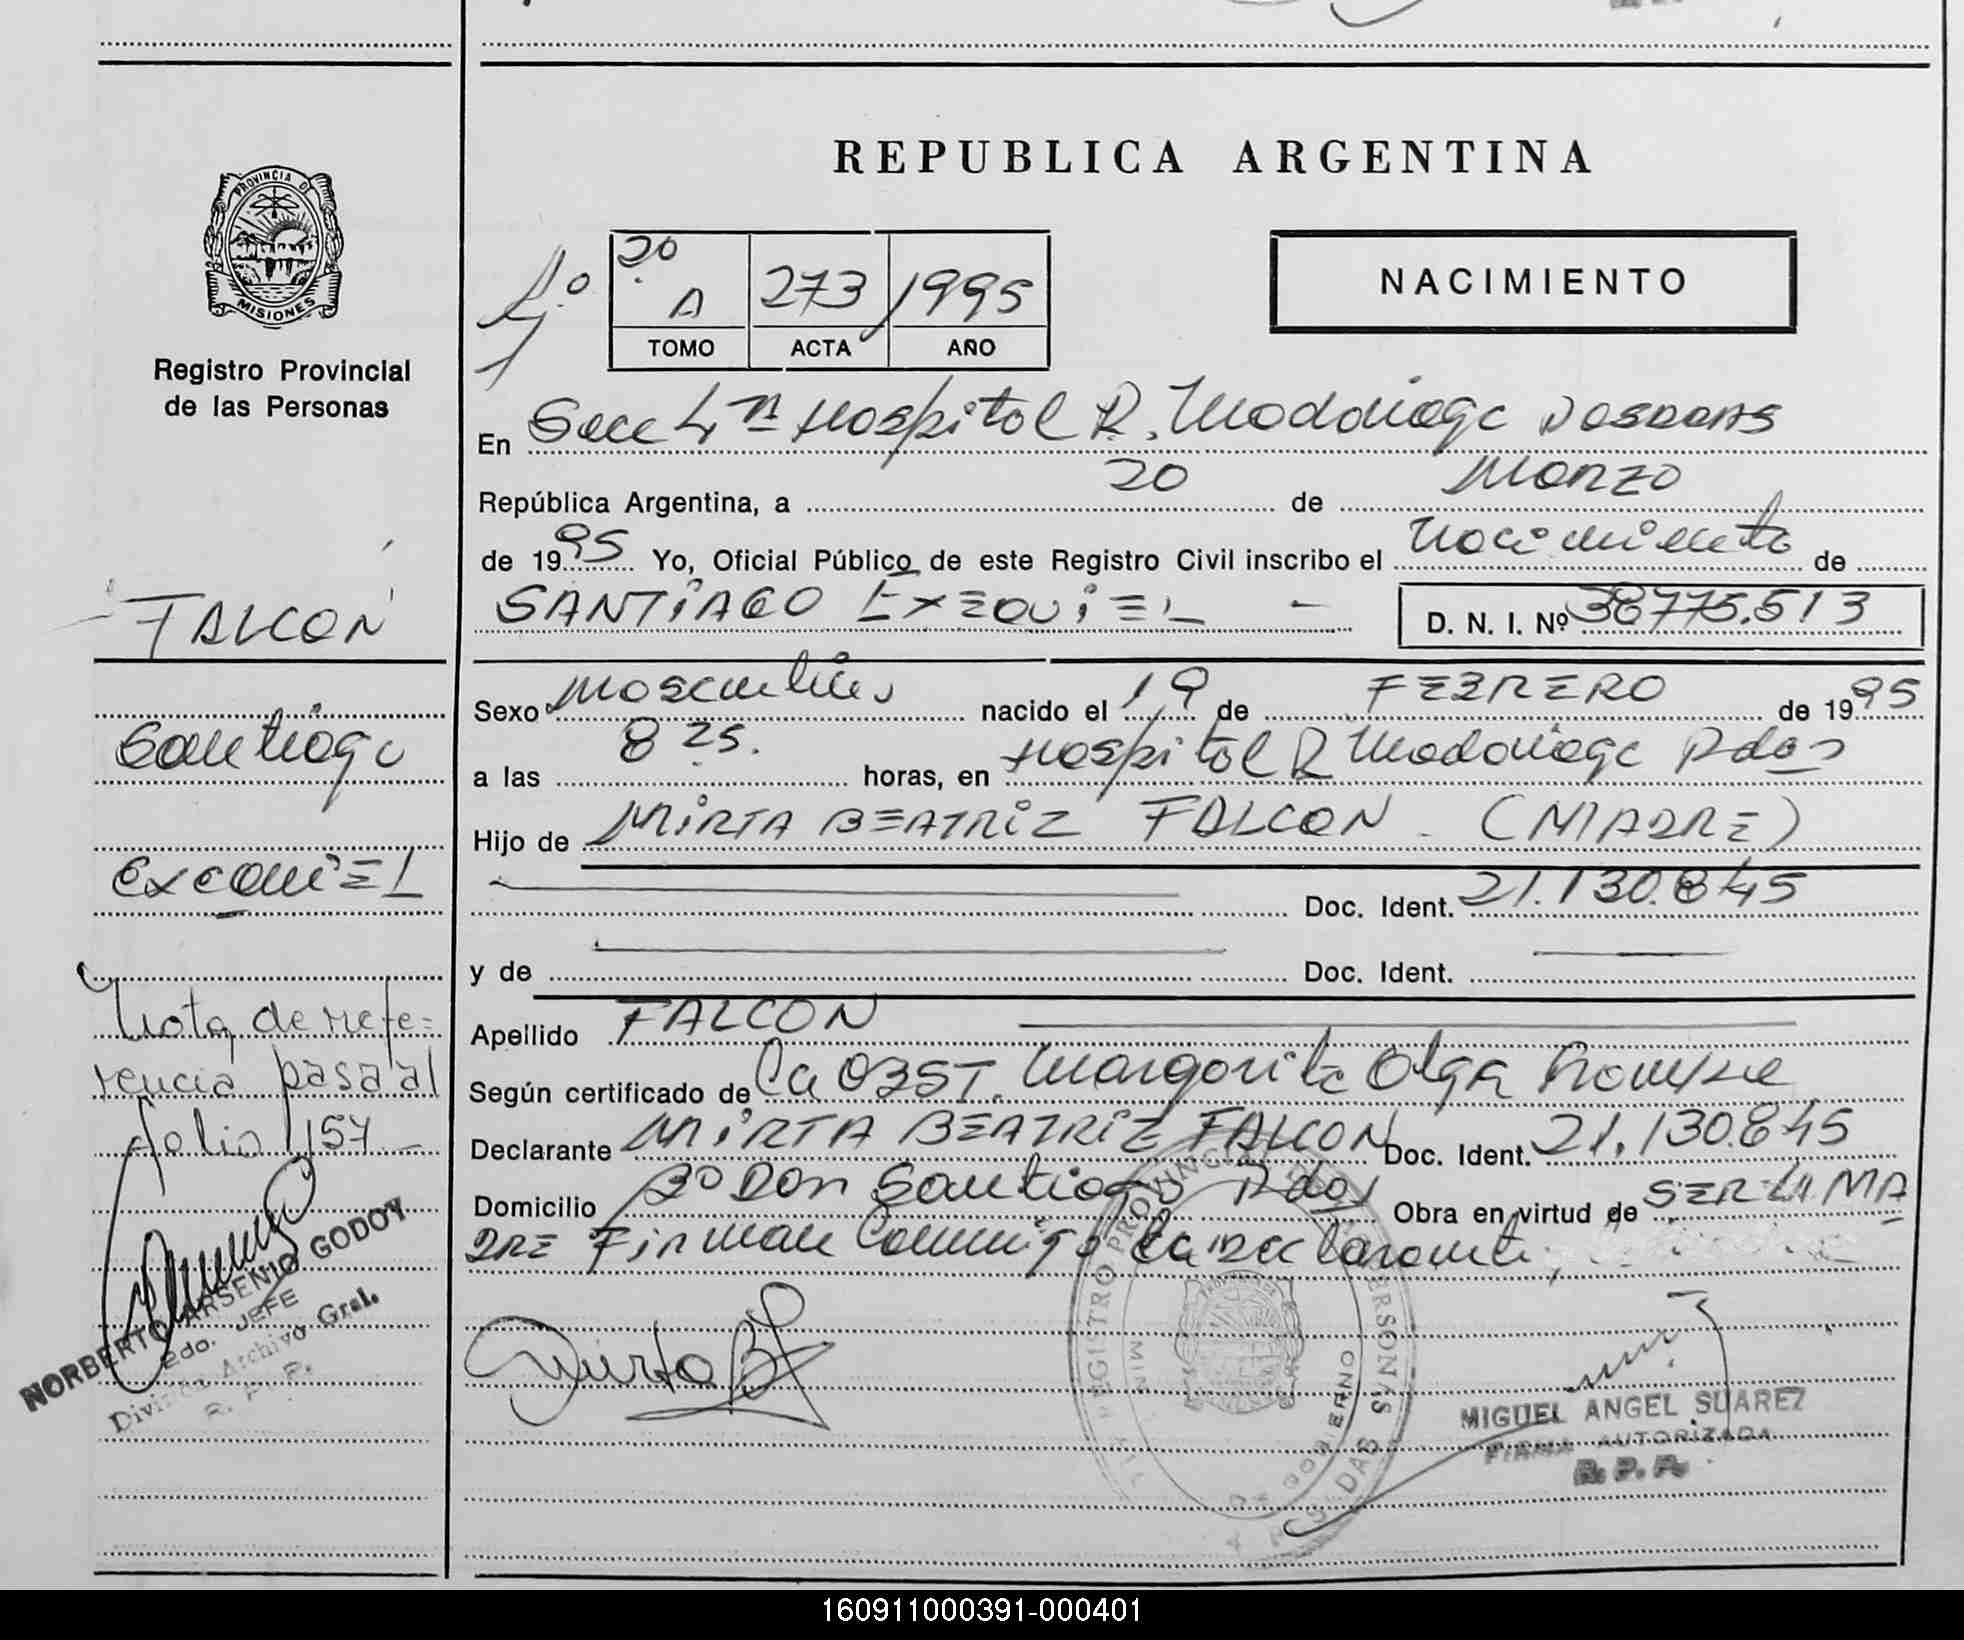 REPUBLICA ARGENTINA
PROVINCIA D
MISIONES
Registro Provincial
de las Personas
1º
2º A 273 1995
TOMO ACTA AÑO
NACIMIENTO
En Secc 4ta Hospital R. Madariaga Posadas
República Argentina, a 20 de Marzo
de 1995 Yo, Oficial Público de este Registro Civil inscribo el Nacimiento de
SANTIAGO EXEQUIEL - D. N. I. Nº 38775.513
FALCON
Santiago
EXEQUIEL
Sexo Masculino nacido el 19 de FEBRERO de 1995
a las 8 25. horas, en Hospital R Madariaga Pdas
Hijo de MIRTA BEATRIZ FALCON. (MADRE)
Doc. Ident. 21.130.845
y de Doc. Ident.
Apellido FALCON
Según certificado de La OBST. Margarita Olga
Declarante MIRTA BEATRIZ FALCON Doc. Ident. 21.130.845
Domicilio Bº Don Santiago Pdas Obra en virtud de SER LA MA
DRE Firman Conmigo La Declarante,
Nota de refe=
rencia pasa al
folio 157
NORBERTO ARSENIO GODOY
2do. JEFE
División Archivo Gral.
R. P. P.
Mirta B F
REGISTRO PROVINCIAL DE LAS PERSONAS
MIGUEL ANGEL SUAREZ
FIRMA AUTORIZADA
R. P. P.
160911000391-000401